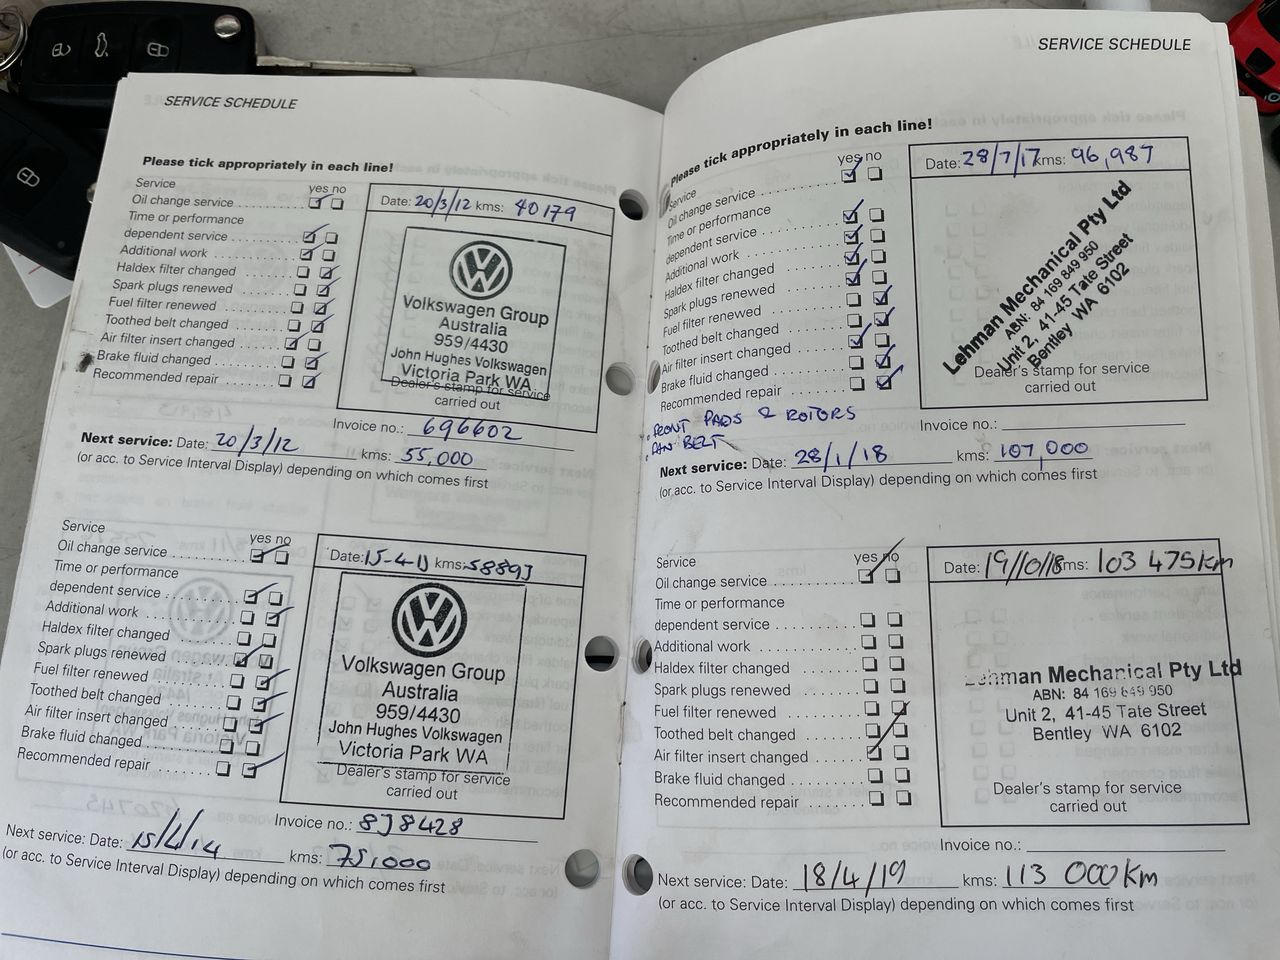 SERVICE SCHEDULE
Please tick appropriately in each line!
Service
yes no
Oil change service
Time or performance
dependent service
Additional work
Haldex filter changed
Spark plugs renewed
Fuel filter renewed
Toothed belt changed
Air filter insert changed
Brake fluid changed
Recommended repair
Date: 20/3/12 kms: 40179
Volkswagen Group
Australia
959/4430
John Hughes Volkswagen
Victoria Park WA
Dealer's stamp for service
carried out
Invoice no.: 696602
Next service: Date: 20/3/12 kms: 55,000
(or acc. to Service Interval Display) depending on which comes first
Service
yes no
Oil change service
Time or performance
dependent service
Additional work
Haldex filter changed
Spark plugs renewed
Fuel filter renewed
Toothed belt changed
Air filter insert changed
Brake fluid changed
Recommended repair
Date: 15-4-13 kms: 58893
Volkswagen Group
Australia
959/4430
John Hughes Volkswagen
Victoria Park WA
Dealer's stamp for service
carried out
Invoice no.: 838428
Next service: Date: 15/4/14 kms: 75,000
(or acc. to Service Interval Display) depending on which comes first
SERVICE SCHEDULE
Please tick appropriately in each line!
yes no
Service
Oil change service
Time or performance
dependent service
Additional work
Haldex filter changed
Spark plugs renewed
Fuel filter renewed
Toothed belt changed
Air filter insert changed
Brake fluid changed
Recommended repair
Date: 28/7/17 kms: 96,987
Lehman Mechanical Pty Ltd
ABN: 84 169 849 950
Unit 2, 41-45 Tate Street
Bentley WA 6102
Dealer's stamp for service
carried out
FRONT PADS & ROTORS
FAN BELT
Invoice no.:
Next service: Date: 28/1/18 kms: 107,000
(or acc. to Service Interval Display) depending on which comes first
Service
yes no
Oil change service
Time or performance
dependent service
Additional work
Haldex filter changed
Spark plugs renewed
Fuel filter renewed
Toothed belt changed
Air filter insert changed
Brake fluid changed
Recommended repair
Date: 19/10/18 kms: 103 475km
Lehman Mechanical Pty Ltd
ABN: 84 169 849 950
Unit 2, 41-45 Tate Street
Bentley WA 6102
Dealer's stamp for service
carried out
Invoice no.:
Next service: Date: 18/4/19 kms: 113 000Km
(or acc. to Service Interval Display) depending on which comes first